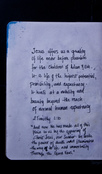 Jesus offers us a quality
of life never before possible
for the children of
is a life of the highest potential,
possibility, and expectancy.
It holds out a nobility and
beauty beyond the reach
of normal human experience
2 Timothy 1:10
"And now he has made all of this
plain to us by the appearing of
Christ Jesus, our Savior. He broke
the power of death and illuminated
the way to life and immortality
through the Good News."